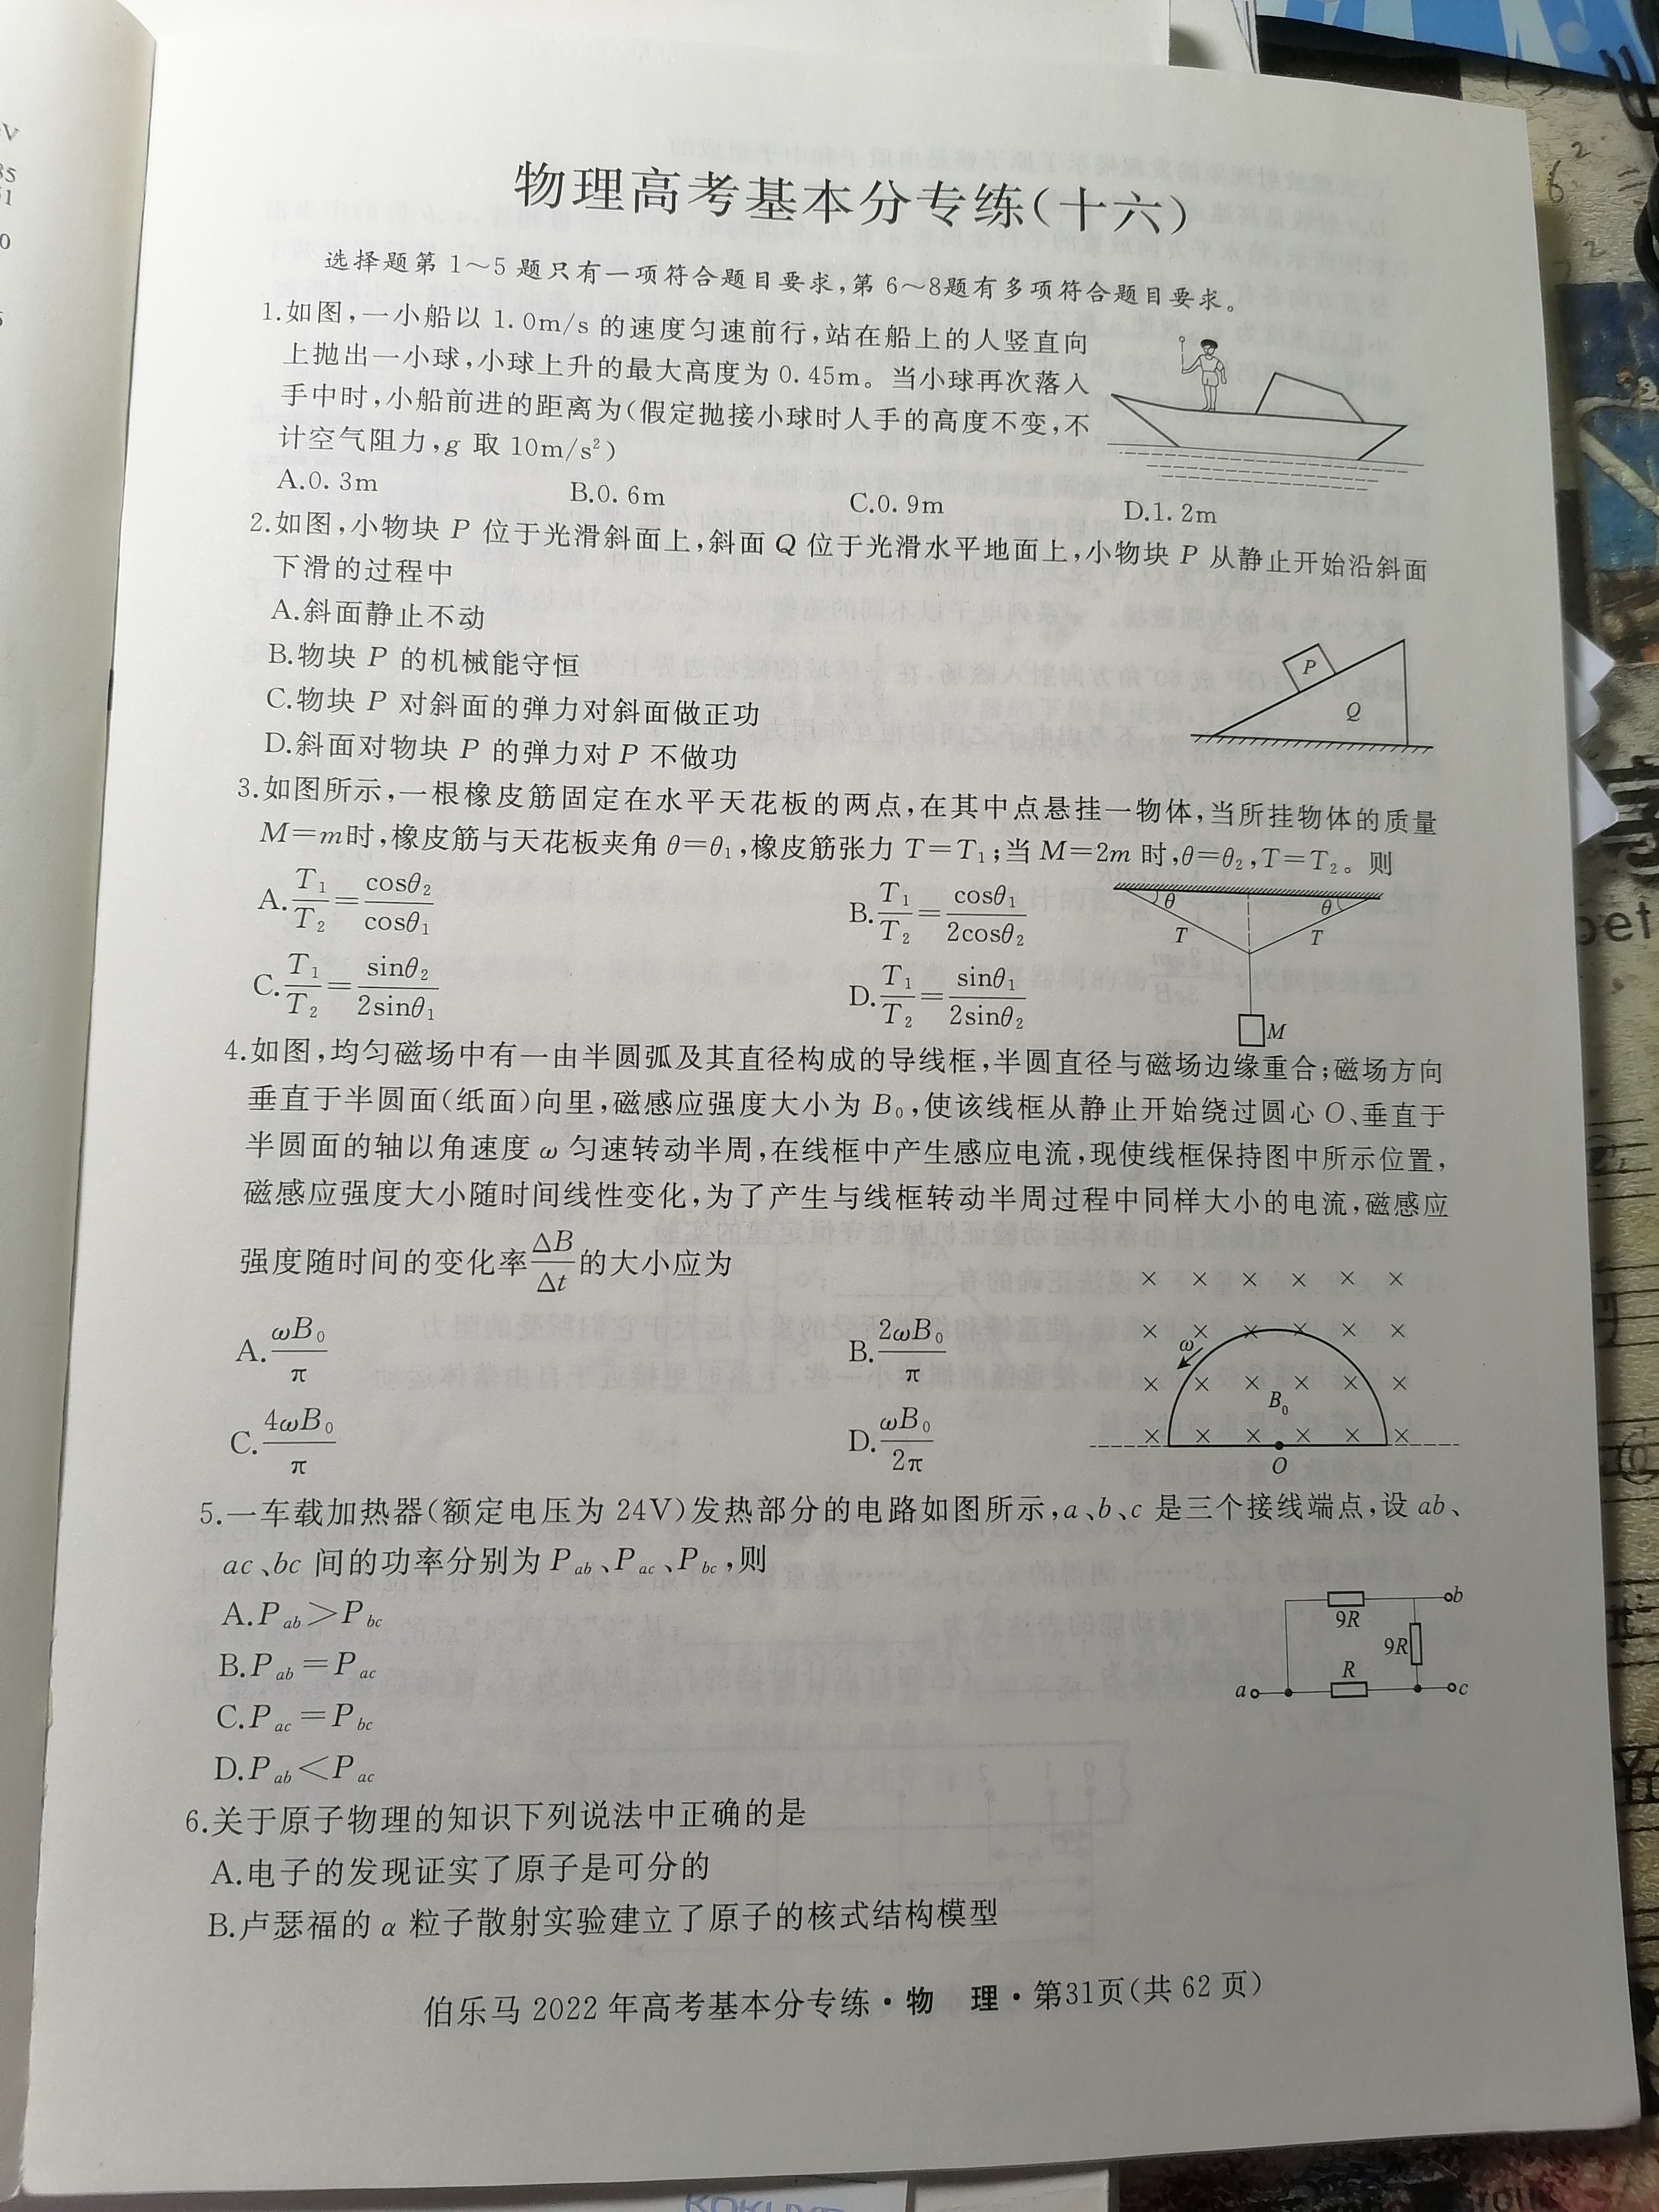 物理高考基本分专练(十六)
选择题第1～5题只有一项符合题目要求,第6～8题有多项符合题目要求。
1.如图,一小船以1.0m/s的速度匀速前行,站在船上的人竖直向
上抛出一小球,小球上升的最大高度为0.45m。当小球再次落入
手中时,小船前进的距离为(假定抛接小球时人手的高度不变,不
计空气阻力,g取10m/s²)
A.0.3m B.0.6m C.0.9m D.1.2m
2.如图,小物块P位于光滑斜面上,斜面Q位于光滑水平地面上,小物块P从静止开始沿斜面
下滑的过程中
A.斜面静止不动
B.物块P的机械能守恒
C.物块P对斜面的弹力对斜面做正功
D.斜面对物块P的弹力对P不做功
P
Q
3.如图所示,一根橡皮筋固定在水平天花板的两点,在其中点悬挂一物体,当所挂物体的质量
M=m时,橡皮筋与天花板夹角θ=θ₁,橡皮筋张力T=T₁;当M=2m时,θ=θ₂,T=T₂。则
A.T₁/T₂=cosθ₂/cosθ₁ B.T₁/T₂=cosθ₁/2cosθ₂
C.T₁/T₂=sinθ₂/2sinθ₁ D.T₁/T₂=sinθ₁/2sinθ₂
θ θ
T T
M
4.如图,均匀磁场中有一由半圆弧及其直径构成的导线框,半圆直径与磁场边缘重合;磁场方向
垂直于半圆面(纸面)向里,磁感应强度大小为B₀,使该线框从静止开始绕过圆心O、垂直于
半圆面的轴以角速度ω匀速转动半周,在线框中产生感应电流,现使线框保持图中所示位置,
磁感应强度大小随时间线性变化,为了产生与线框转动半周过程中同样大小的电流,磁感应
强度随时间的变化率ΔB/Δt的大小应为
A.ωB₀/π B.2ωB₀/π
C.4ωB₀/π D.ωB₀/2π
× × × × × ×
× × × × × ×
ω
× × × × × ×
B₀
× × × × × ×
O
5.一车载加热器(额定电压为24V)发热部分的电路如图所示,a、b、c是三个接线端点,设ab、
ac、bc间的功率分别为Pab、Pac、Pbc,则
A.Pab>Pbc
B.Pab=Pac
C.Pac=Pbc
D.Pab<Pac
b
9R
9R
R
a c
6.关于原子物理的知识下列说法中正确的是
A.电子的发现证实了原子是可分的
B.卢瑟福的α粒子散射实验建立了原子的核式结构模型
伯乐马2022年高考基本分专练·物 理·第31页(共62页)